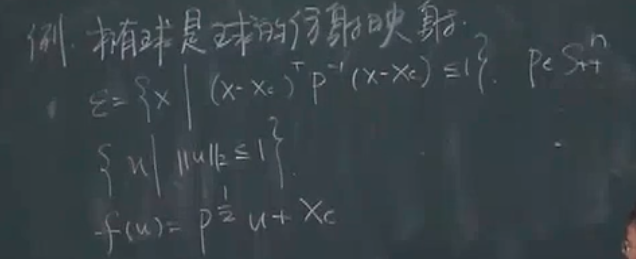 例. 椭球是球的仿射映射.
ε = {x | (x-xc)ᵀ P⁻¹ (x-xc) ≤ 1}. P∈S₊₊ⁿ
{u | ‖u‖₂ ≤ 1}.
f(u) = P^{1/2} u + xc